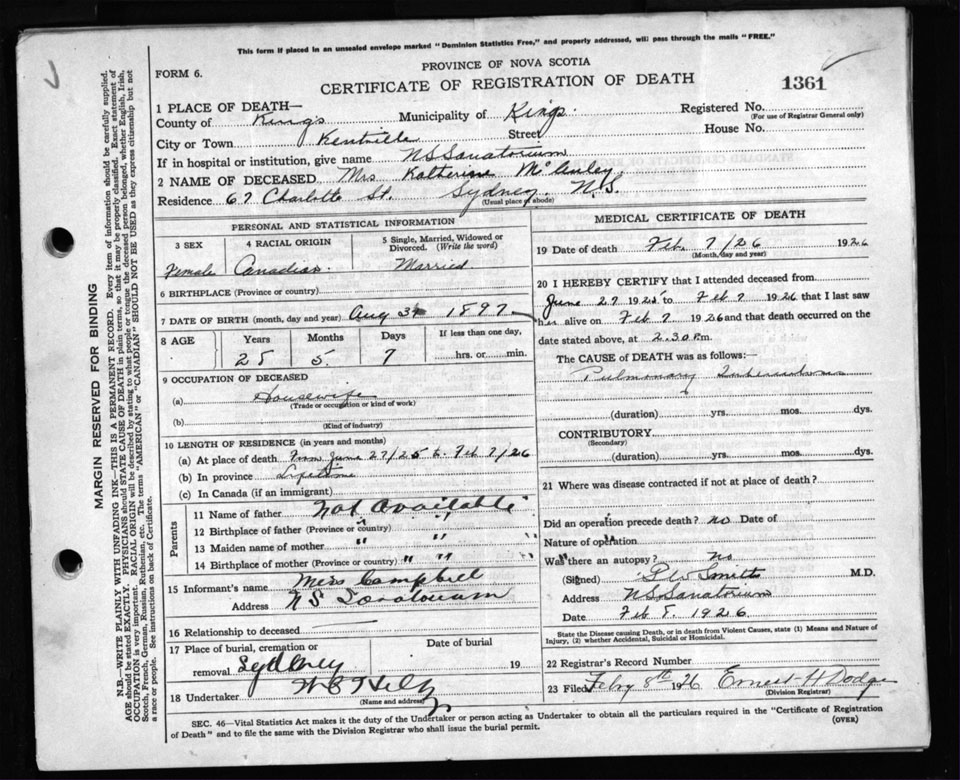 This form if placed in an unsealed envelope marked "Dominion Statistics Free," and properly addressed, will pass through the mails "FREE."
FORM 6.
PROVINCE OF NOVA SCOTIA
CERTIFICATE OF REGISTRATION OF DEATH
1361
1 PLACE OF DEATH—
County of Kings Municipality of Kings Registered No.
(For use of Registrar General only)
City or Town Kentville Street House No.
If in hospital or institution, give name NS Sanatorium
2 NAME OF DECEASED Mrs Katherine McAuley
Residence 67 Charlotte St. Sydney N.S.
(Usual place of abode)
PERSONAL AND STATISTICAL INFORMATION
3 SEX 4 RACIAL ORIGIN 5 Single, Married, Widowed or Divorced. (Write the word)
Female Canadian. Married
6 BIRTHPLACE (Province or country)
7 DATE OF BIRTH (month, day and year) Aug 1897
8 AGE Years Months Days If less than one day,
28 5 7 hrs. or min.
9 OCCUPATION OF DECEASED
(a) Housewife
(Trade or occupation or kind of work)
(b)
(Kind of industry)
10 LENGTH OF RESIDENCE (in years and months)
(a) At place of death From June 27/25 to Feb 7/26
(b) In province Lifetime
(c) In Canada (if an immigrant)
Parents
11 Name of father Not Available
12 Birthplace of father (Province or country) " "
13 Maiden name of mother " " "
14 Birthplace of mother (Province or country) " " "
15 Informant's name Miss Campbell
Address NS Sanatorium
16 Relationship to deceased
17 Place of burial, cremation or removal Sydney Date of burial 19
18 Undertaker
(Name and address)
MEDICAL CERTIFICATE OF DEATH
19 Date of death Feb. 7/26 1926
(Month, day and year)
20 I HEREBY CERTIFY that I attended deceased from
June 27 1925 to Feb 7 1926 that I last saw
her alive on Feb 7 1926 and that death occurred on
date stated above, at 2.30 P.m.
The CAUSE OF DEATH was as follows:—
Pulmonary Tuberculosis
(duration) yrs. mos. dys.
CONTRIBUTORY
(Secondary)
(duration) yrs. mos. dys.
21 Where was disease contracted if not at place of death?
Did an operation precede death? no Date of
Nature of operation
Was there an autopsy? No
(Signed) Smith M.D.
Address NS Sanatorium
Date Feb 8. 1926
State the Disease causing Death, or in death from Violent Causes, state (1) Means and Nature of Injury, (2) whether Accidental, Suicidal or Homicidal.
22 Registrar's Record Number
23 Filed Feby 8th 1926 Ernest H Dodge
(Division Registrar)
SEC. 46—Vital Statistics Act makes it the duty of the Undertaker or person acting as Undertaker to obtain all the particulars required in the "Certificate of Registration
of Death" and to file the same with the Division Registrar who shall issue the burial permit.
(OVER)
MARGIN RESERVED FOR BINDING
N.B.—WRITE PLAINLY WITH UNFADING INK—THIS IS A PERMANENT RECORD. Every item of information should be carefully supplied.
AGE should be stated EXACTLY. PHYSICIANS should STATE CAUSE OF DEATH in plain terms, so that it may be properly classified. Exact statement of
OCCUPATION is very important. RACIAL ORIGIN will be described by stating to what people or tongue the deceased person belonged, whether English, Irish,
Scotch, French, German, Russian, Ruthenian, etc. The terms "AMERICAN" or "CANADIAN" SHOULD NOT BE USED as they express citizenship but not
a race or people. See instructions on back of Certificate.